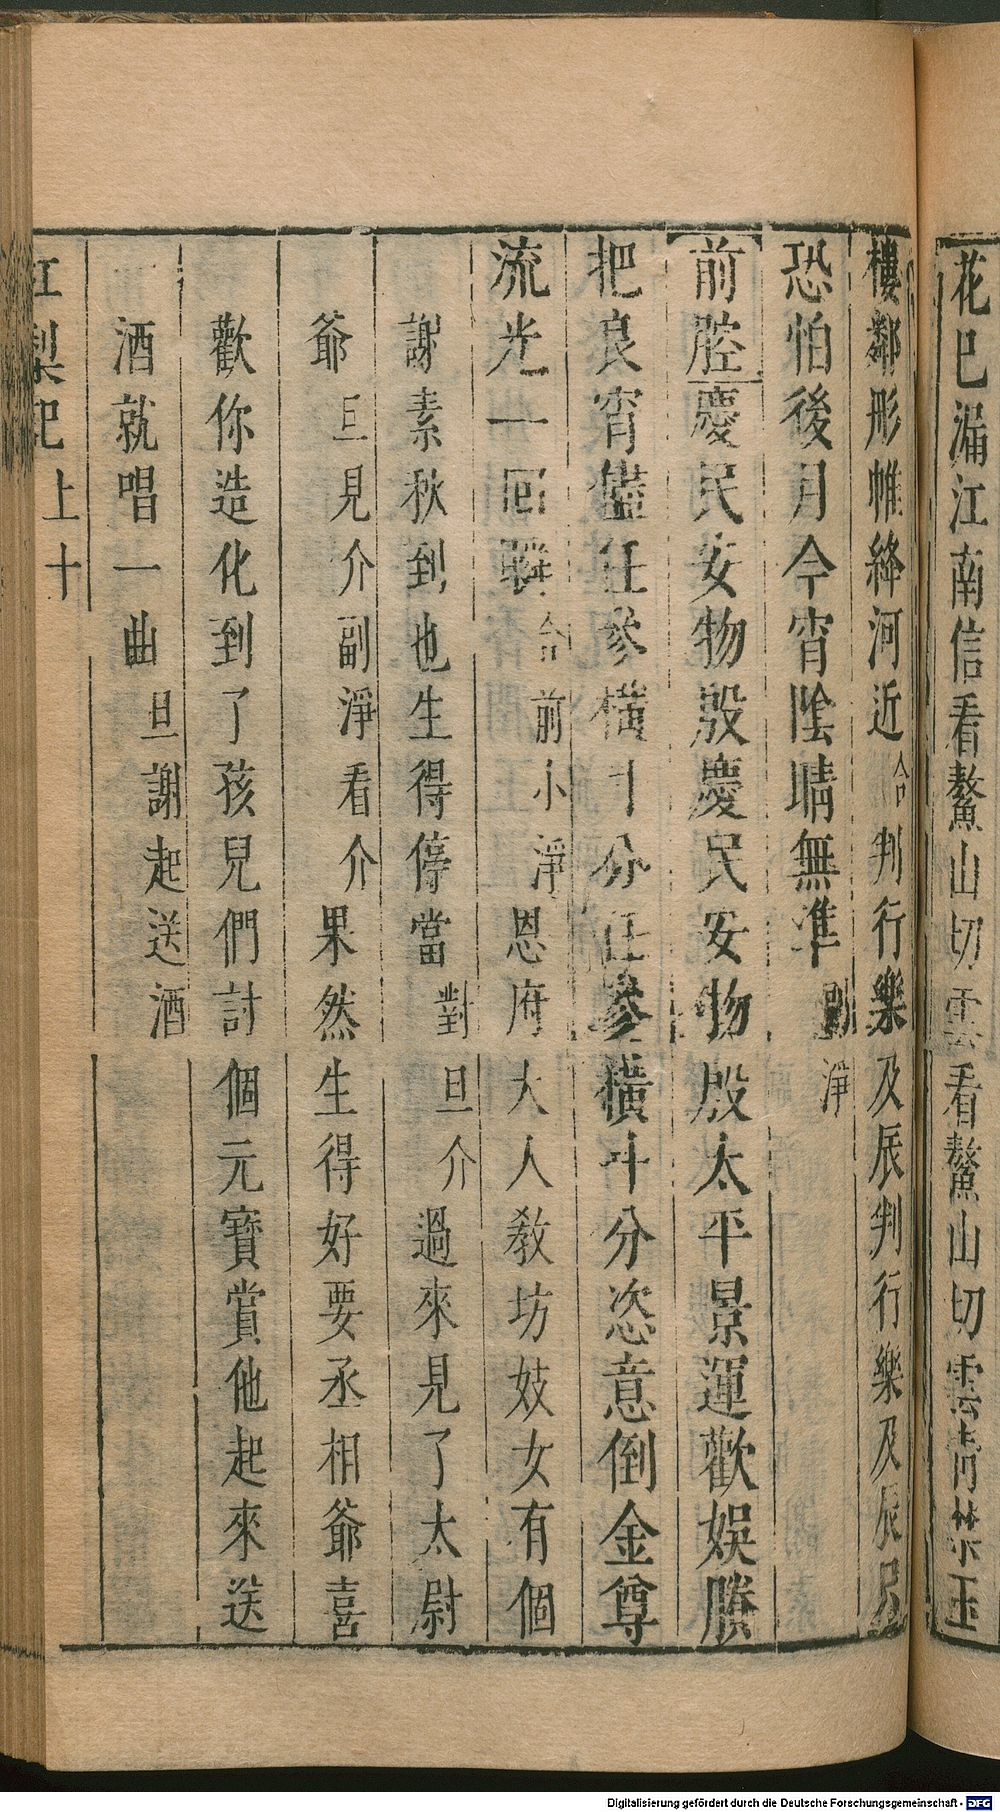 花已漏江南信看鰲山切雲看鰲山切雲清禁玉
樓鄰形帷絳河近合判行樂及辰判行樂及辰只
恐怕後月今宵陰晴無準副淨
前腔慶民安物殷慶民安物殷太平景運歡娛賸
把良宵儘任參橫斗分任參橫斗分恣意倒金尊
流光一回瞬合前小淨恩府大人教坊妓女有個
謝素秋到也生得停當對旦介過來見了太尉
爺旦見介副淨看介果然生得好要丞相爺喜
歡你造化到了孩兒們討個元寶賞他起來送
酒就唱一曲旦謝起送酒
紅梨記上十
Digitalisierung gefördert durch die Deutsche Forschungsgemeinschaft - DFG